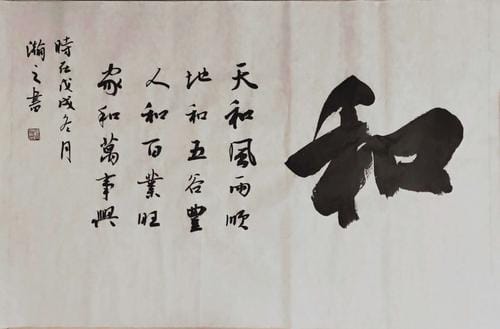 和
天和風雨順
地和五谷豐
人和百業旺
家和萬事興
時在戊戌冬月
瀚之書